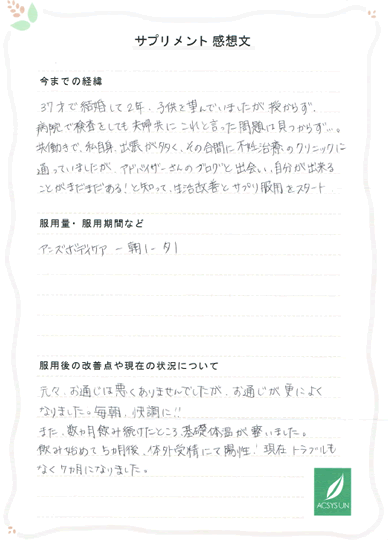 サプリメント 感想文
今までの経緯
37才で結婚して2年、子供を望んでいましたが授からず、
病院で検査をしても夫婦共にこれと言った問題は見つからず…。
共働きで、私自身、出張が多く、その合間に不妊治療のクリニックに
通っていましたが、アドバイザーさんのブログと出会い、自分が出来る
ことがまだまだある！と知って、生活改善とサプリ服用をスタート
服用量・服用期間など
アンズボディケア － 朝1- 夕1
服用後の改善点や現在の状況について
元々、お通じは悪くありませんでしたが、お通じが更によく
なりました。毎朝、快調に!!
また、数ヵ月飲み続けたところ、基礎体温が整いました。
飲み始めて5ヵ月後、体外受精にて陽性！現在トラブルも
なく7ヵ月になりました。
ACSYSUN